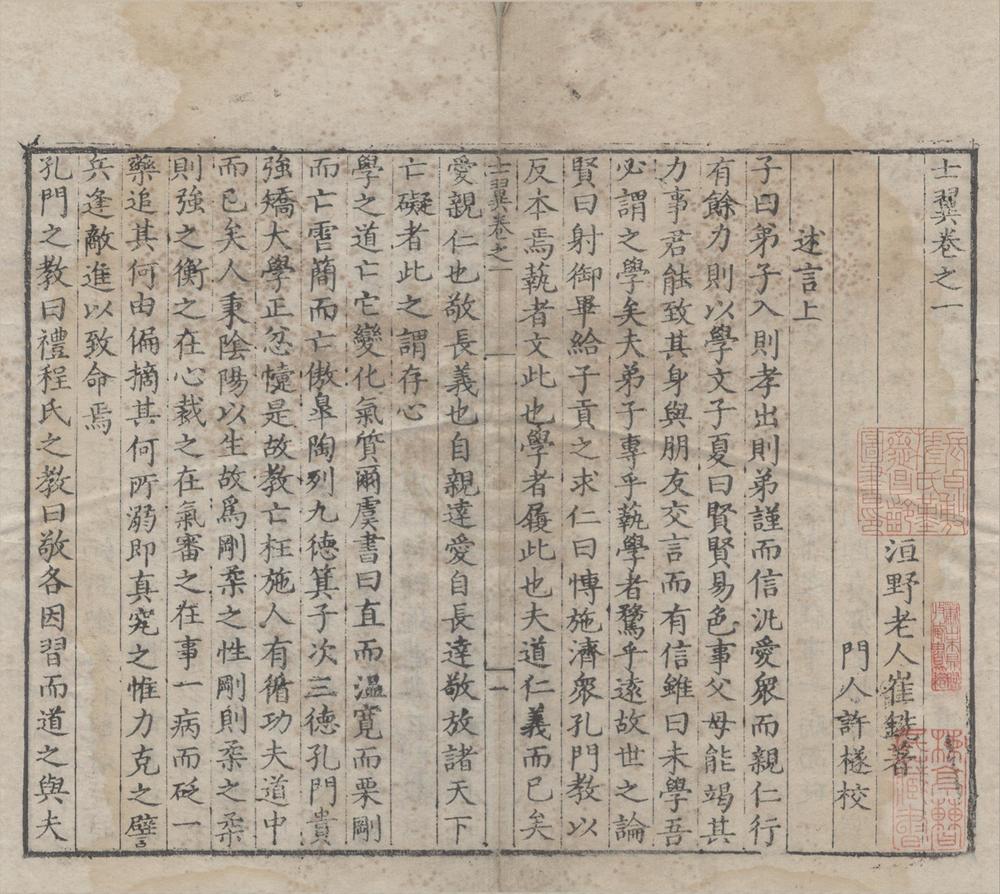 士翼卷之一
洹野老人崔銑著
門人許檖校
述言上
子曰弟子入則孝出則弟謹而信汎愛衆而親仁行
有餘力則以學文子夏曰賢賢易色事父母能竭其
力事君能致其身與朋友交言而有信雖曰未學吾
必謂之學矣夫弟子專乎執學者騖乎遠故世之論
賢曰射御畢給子貢之求仁曰博施濟衆孔門教以
反本焉執者文此也學者履此也夫道仁義而已矣
士翼卷之一
一
愛親仁也敬長義也自親達愛自長達敬放諸天下
亡礙者此之謂存心
學之道亡它變化氣質爾虞書曰直而溫寬而栗剛
而亡雪蕑而亡傲皐陶列九德箕子次三德孔門貴
強矯大學正忿懥是故教亡枉施人有循功夫道中
而已矣人秉陰陽以生故爲剛柔之性剛則柔之柔
則強之衡之在心裁之在氣審之在事一病而砭一
藥追其何由偏摘其何所溺即真究之惟力克之譬
兵逢敵進以致命焉
孔門之教曰禮程氏之教曰敬各因習而道之與夫